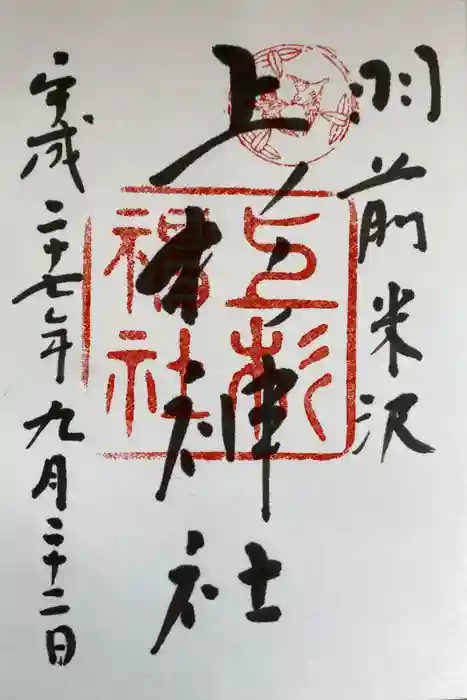 羽前米沢
上杉神社
平成二十七年九月二十二日
上杉
神社